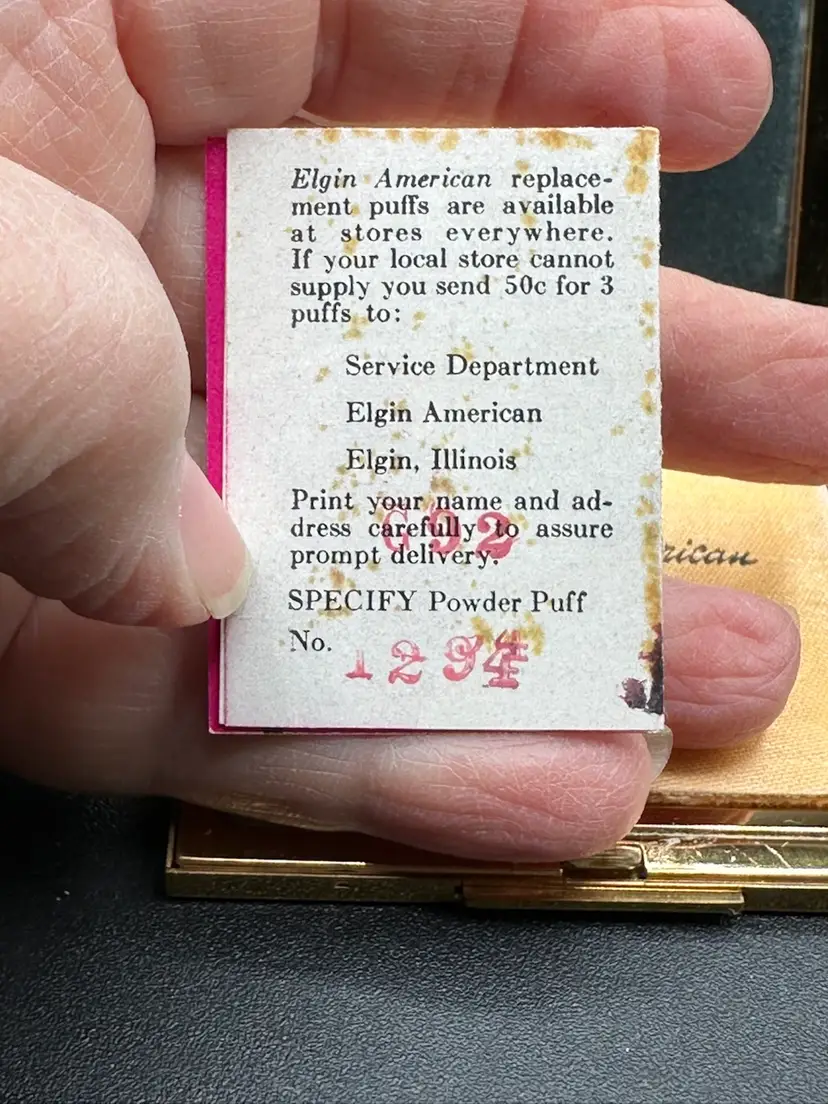 Elgin American replace-
ment puffs are available
at stores everywhere.
If your local store cannot
supply you send 50c for 3
puffs to:
Service Department
Elgin American
Elgin, Illinois
Print your name and ad-
dress carefully to assure
prompt delivery.
G92
SPECIFY Powder Puff
No. 1294